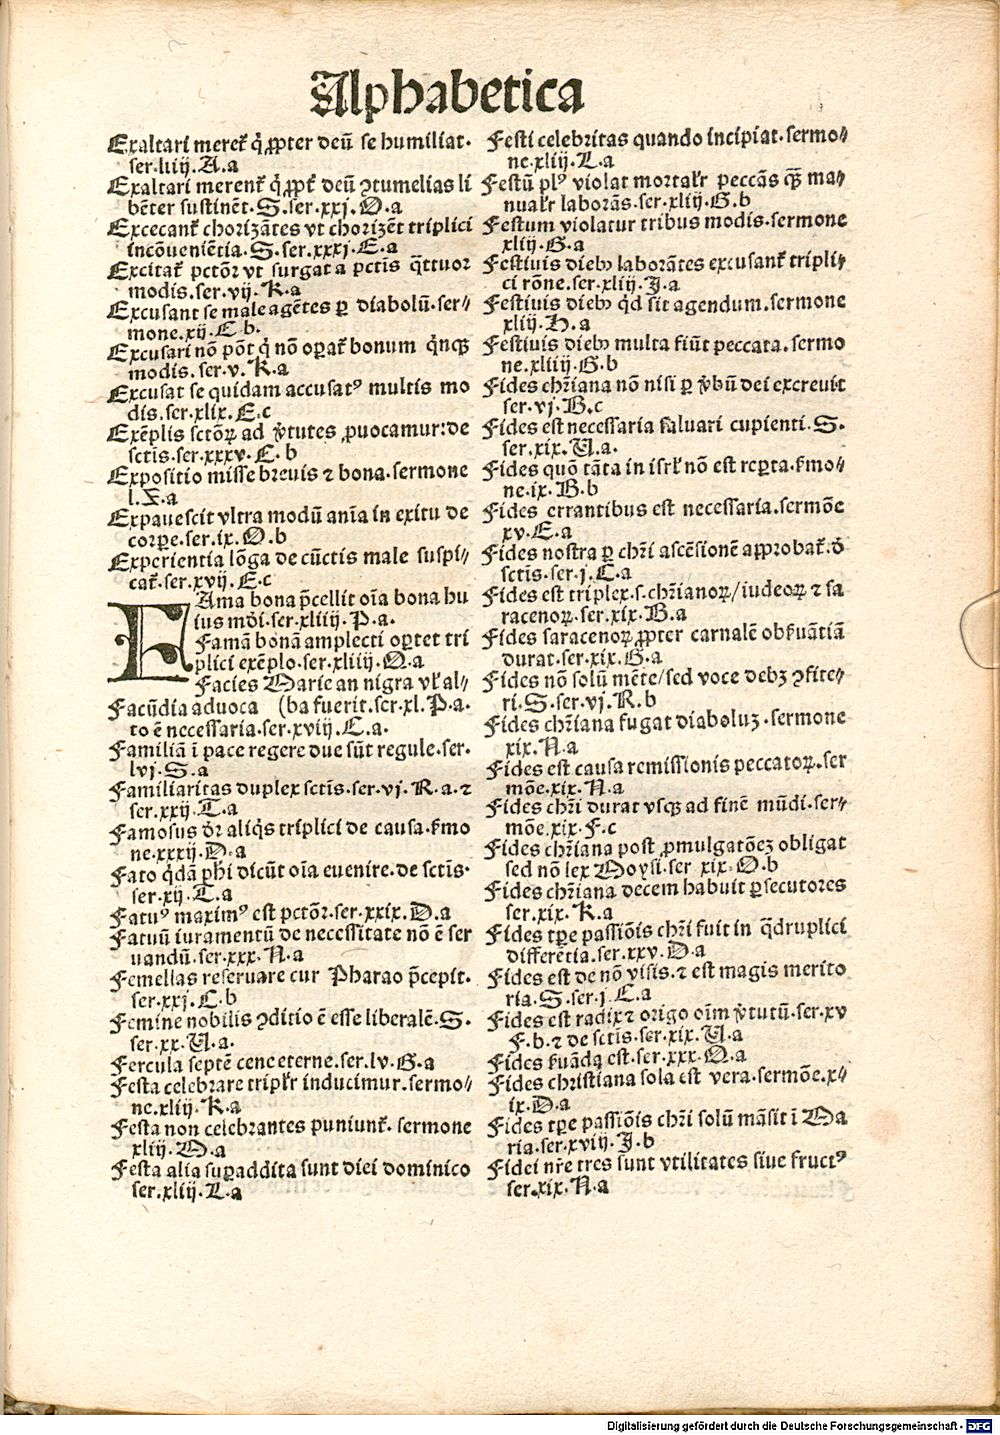 Alphabetica
Exaltari meret᷑ q̇ ꝓpter deū se humiliat.
ser.liij.A.a
Exaltari merent᷑ q̇ ꝓpt᷑ deū ↄtumelias li
bēter sustinēt.S.ser.xxj.O.a
Excecant᷑ chorizātes vt chorizēt triplici
incōueniētia.S.ser.xxxj.E.a
Excitat᷑ pctōr vt surgat a pctīs q̄ttuor
modis.ser.vij.K.a
Excusant se male agētes ꝑ diabolū.ser⸗
mone.xij.C.b.
Excusari nō pōt q̇ nō oꝑat᷑ bonum q̇nqꝫ
modis.ser.v.K.a
Excusat se quidam accusatꝰ multis mo
dis.ser.xlix.E.c
Exēplis sctōꝝ ad v̄tutes ꝓuocamur:de
sctīs.ser.xxxv.C.b
Expositio misse breuis ⁊ bona.sermone
l.X.a
Expauescit vltra modū aīa in exitu de
corꝑe.ser.ix.O.b
Experientia lōga de cūctis male suspi⸗
cat᷑.ser.xvij.E.c
FAma bona p̄cellit oīa bona hu
ius mōi.ser.xliiij.P.a.
Famā bonā amplecti oꝑtet tri
plici exēplo.ser.xliiij.Q.a
Facies Marie an nigra vl᷑ al⸗
Facūdia aduoca (ba fuerit.ser.xl.P.a.
to ē necessaria.ser.xviij.C.a.
Familiā ī pace regere due sūt regule.ser.
lvj.S.a
Familiaritas duplex sctīs.ser.vj.R.a.⁊
ser.xxij.T.a
Famosus dr̄ aliq̇s triplici de causa.ẜmo
ne.xxxij.D.a
Fato q̇dā ph̄i dicūt oīa euenire.de sctīs.
ser.xij.T.a
Fatuꝰ maximꝰ est pctōr.ser.xxix.D.a
Fatuū iuramentū de necessitate nō ē ser
uandū.ser.xxx.N.a
Femellas reseruare cur Pharao p̄cepit.
ser.xxj.C.b
Femine nobilis ↄditio ē esse liberalē.S.
ser.xx.U.a.
Fercula septē cene eterne.ser.lv.G.a
Festa celebrare tripl᷑r inducimur.sermo⸗
ne.xlij.K.a
Festa non celebrantes puniunt᷑. sermone
xlij.M.a
Festa alia suꝑaddita sunt diei dominico
ser.xlij.L.a
Festi celebritas quando incipiat.sermo⸗
ne.xliij.L.a
Festū plꝰ violat mortal᷑r peccās qꝫ ma⸗
nual᷑r laborās.ser.xliij.G.b
Festum violatur tribus modis.sermone
xliij.G.a
Festiuis diebꝫ laborātes excusant᷑ tripli⸗
ci rōne.ser.xliij.I.a
Festiuis diebꝫ q̇d sit agendum.sermone
xliij.H.a
Festiuis diebꝫ multa fiūt peccata.sermo
ne.xliiij.G.b
Fides chr̄iana nō nisi ꝑ v̄bū dei excreuit
ser.vj.B.c
Fides est necessaria saluari cupienti.S.
ser.xix.U.a.
Fides quō tāta in isrl᷑ nō est reꝑta.ẜmo⸗
ne.ix.B.b
Fides errantibus est necessaria.sermōe
xv.E.a
Fides nostra ꝑ chr̄i ascēsionē aꝓbat᷑.ō
sctīs.ser.j.C.a
Fides est triplex.s.chr̄ianoꝝ/iudeoꝝ ⁊ sa
racenoꝝ.ser.xix.B.a
Fides saracenoꝝ ꝓpter carnalē obẜuātiā
durat.ser.xix.G.a
Fides nō solū mēte/sed voce debꝫ ↄfite⸗
ri.S.ser.vj.R.b
Fides chr̄iana fugat diaboluꝫ.sermone
xix.N.a
Fides est causa remissionis peccatoꝝ.ser
mōe.xix.N.a
Fides chr̄i durat vsqꝫ ad finē mūdi.ser⸗
mōe.xix.F.c
Fides chr̄iana post ꝓmulgatōeꝫ obligat
sed nō lex Moysi.ser xix.O.b
Fides chr̄iana decem habuit ꝑsecutores
ser.xix.K.a
Fides tꝑe passiōis chr̄i fuit in q̄druplici
differētia.ser.xxv.D.a
Fides est de nō visis.⁊ est magis merito
ria.S.ser.j.E.a
Fides est radix ⁊ origo oīm v̄tutū.ser.xv
F.b.⁊ de sctīs.ser.xix.U.a
Fides ẜuāda est.ser.xxx.Q.a
Fides christiana sola est vera.sermōe.x⸗
ix.D.a
Fides tꝑe passiōis chr̄i solū māsit ī Ma
ria.ser.xviij.I.b
Fidei nr̄e tres sunt vtilitates siue fructꝰ
ser.xix.N.a
Digitalisierung gefördert durch die Deutsche Forschungsgemeinschaft - DFG